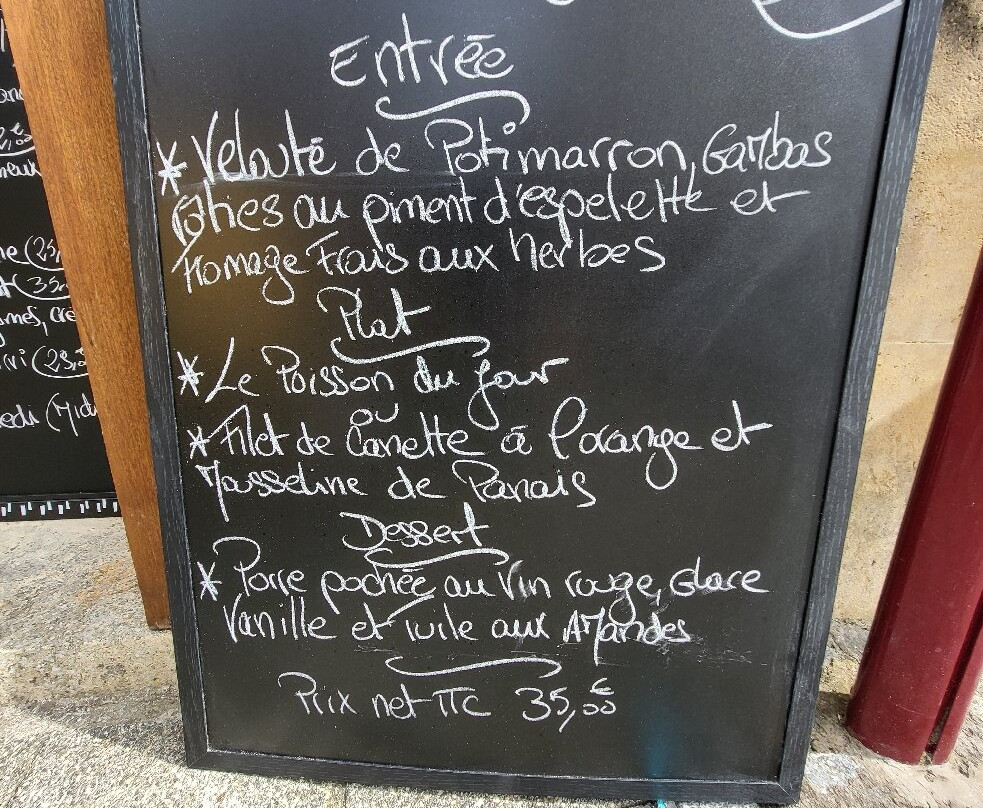 Entrée
* Velouté de Potimarron, Gambas
roties au piment d'espelette et
Fromage Frais aux herbes
Plat
* Le Poisson du jour
ou
* Filet de Canette à l'orange et
Mousseline de Panais
Dessert
* Poire pochée au Vin rouge, Glace
Vanille et tuile aux Amandes
Prix net TTC 35,00€